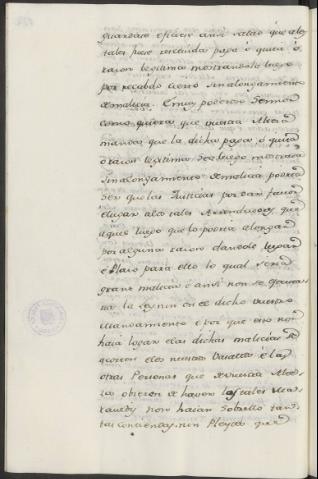 guardase é ficiese anssi salvo que á los
tales fuese rescevida paga ó quita ó
razon legitima mostrandolo luego
por recabdo cierto sin alongamiento
de malicia. E muy poderoso Señor
como quiera que vuestra Alteza
manda que la dicha paga ó quita
ó razon legitima sea luego mostrada
sin alongamiento de malicia podria
ser que las Justicias por dar favor
é lugar á los tales Arrendadores que
aquel luego que lo podria alongar
por alguna razon dandole lugar
é Plazo para ello lo qual seria
grant malicia é ansi non se guarda
ria la ley nin en el dicho vuestro
Mandamiento é por que esto non
haia logar é las dichas malicias se
escusen é los vuestros Vasallos é las
otras Personas que de vuestra Alte-
za obieren de haver los tales Mara-
vedis non haian sobrello tan-
tas contiendas, nin Pleytos que